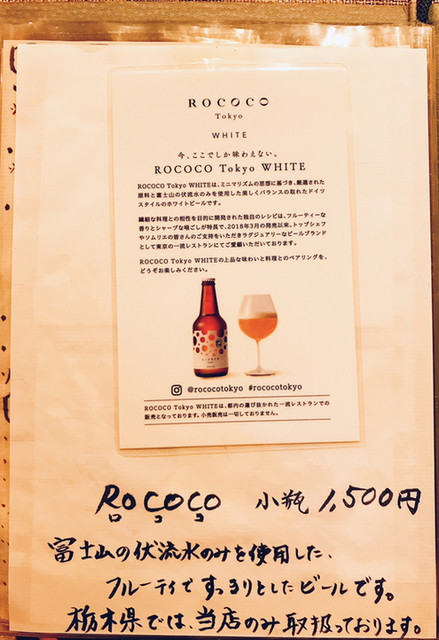 ROCOCO
Tokyo
WHITE
今、ここでしか味わえない。
ROCOCO Tokyo WHITE
ROCOCO Tokyo WHITEは、ミニマリズムの思想に基づき、厳選された
原料と富士山の伏流水のみを使用した美しくバランスの取れたドイツ
スタイルのホワイトビールです。
繊細な料理との相性を目的に開発された独自のレシピは、フルーティーな
香りとシャープな喉ごしが特長で、2018年3月の発売以来、トップシェフ
やソムリエの皆さんのご支持をいただきラグジュアリーなビールブランド
として東京の一流レストランにてご愛顧いただいております。
ROCOCO Tokyo WHITEの上品な味わいと料理とのペアリングを、
どうぞお楽しみください。
@rococotokyo #rococotokyo
ROCOCO Tokyo WHITEは、都内の選び抜かれた一流レストランでの
販売となっております。小売販売は一切しておりません。
ROCOCO 小瓶 1,500円
ロココ
富士山の伏流水のみを使用した、
フルーティですっきりとしたビールです。
栃木県では、当店のみ取扱っております。